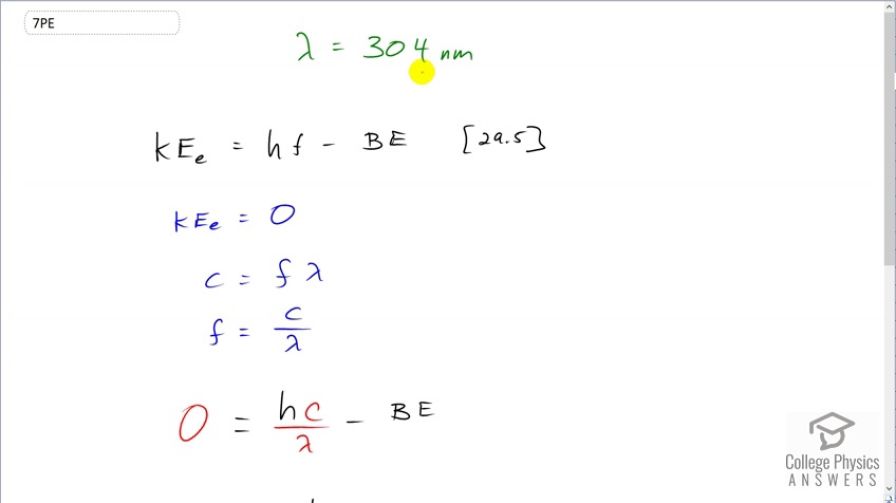 7PE
λ = 304 nm
KEe = hf - BE [29.5]
KEe = 0
c = f λ
f = c/λ
0 = hc/λ - BE
College Physics
ANSWERS